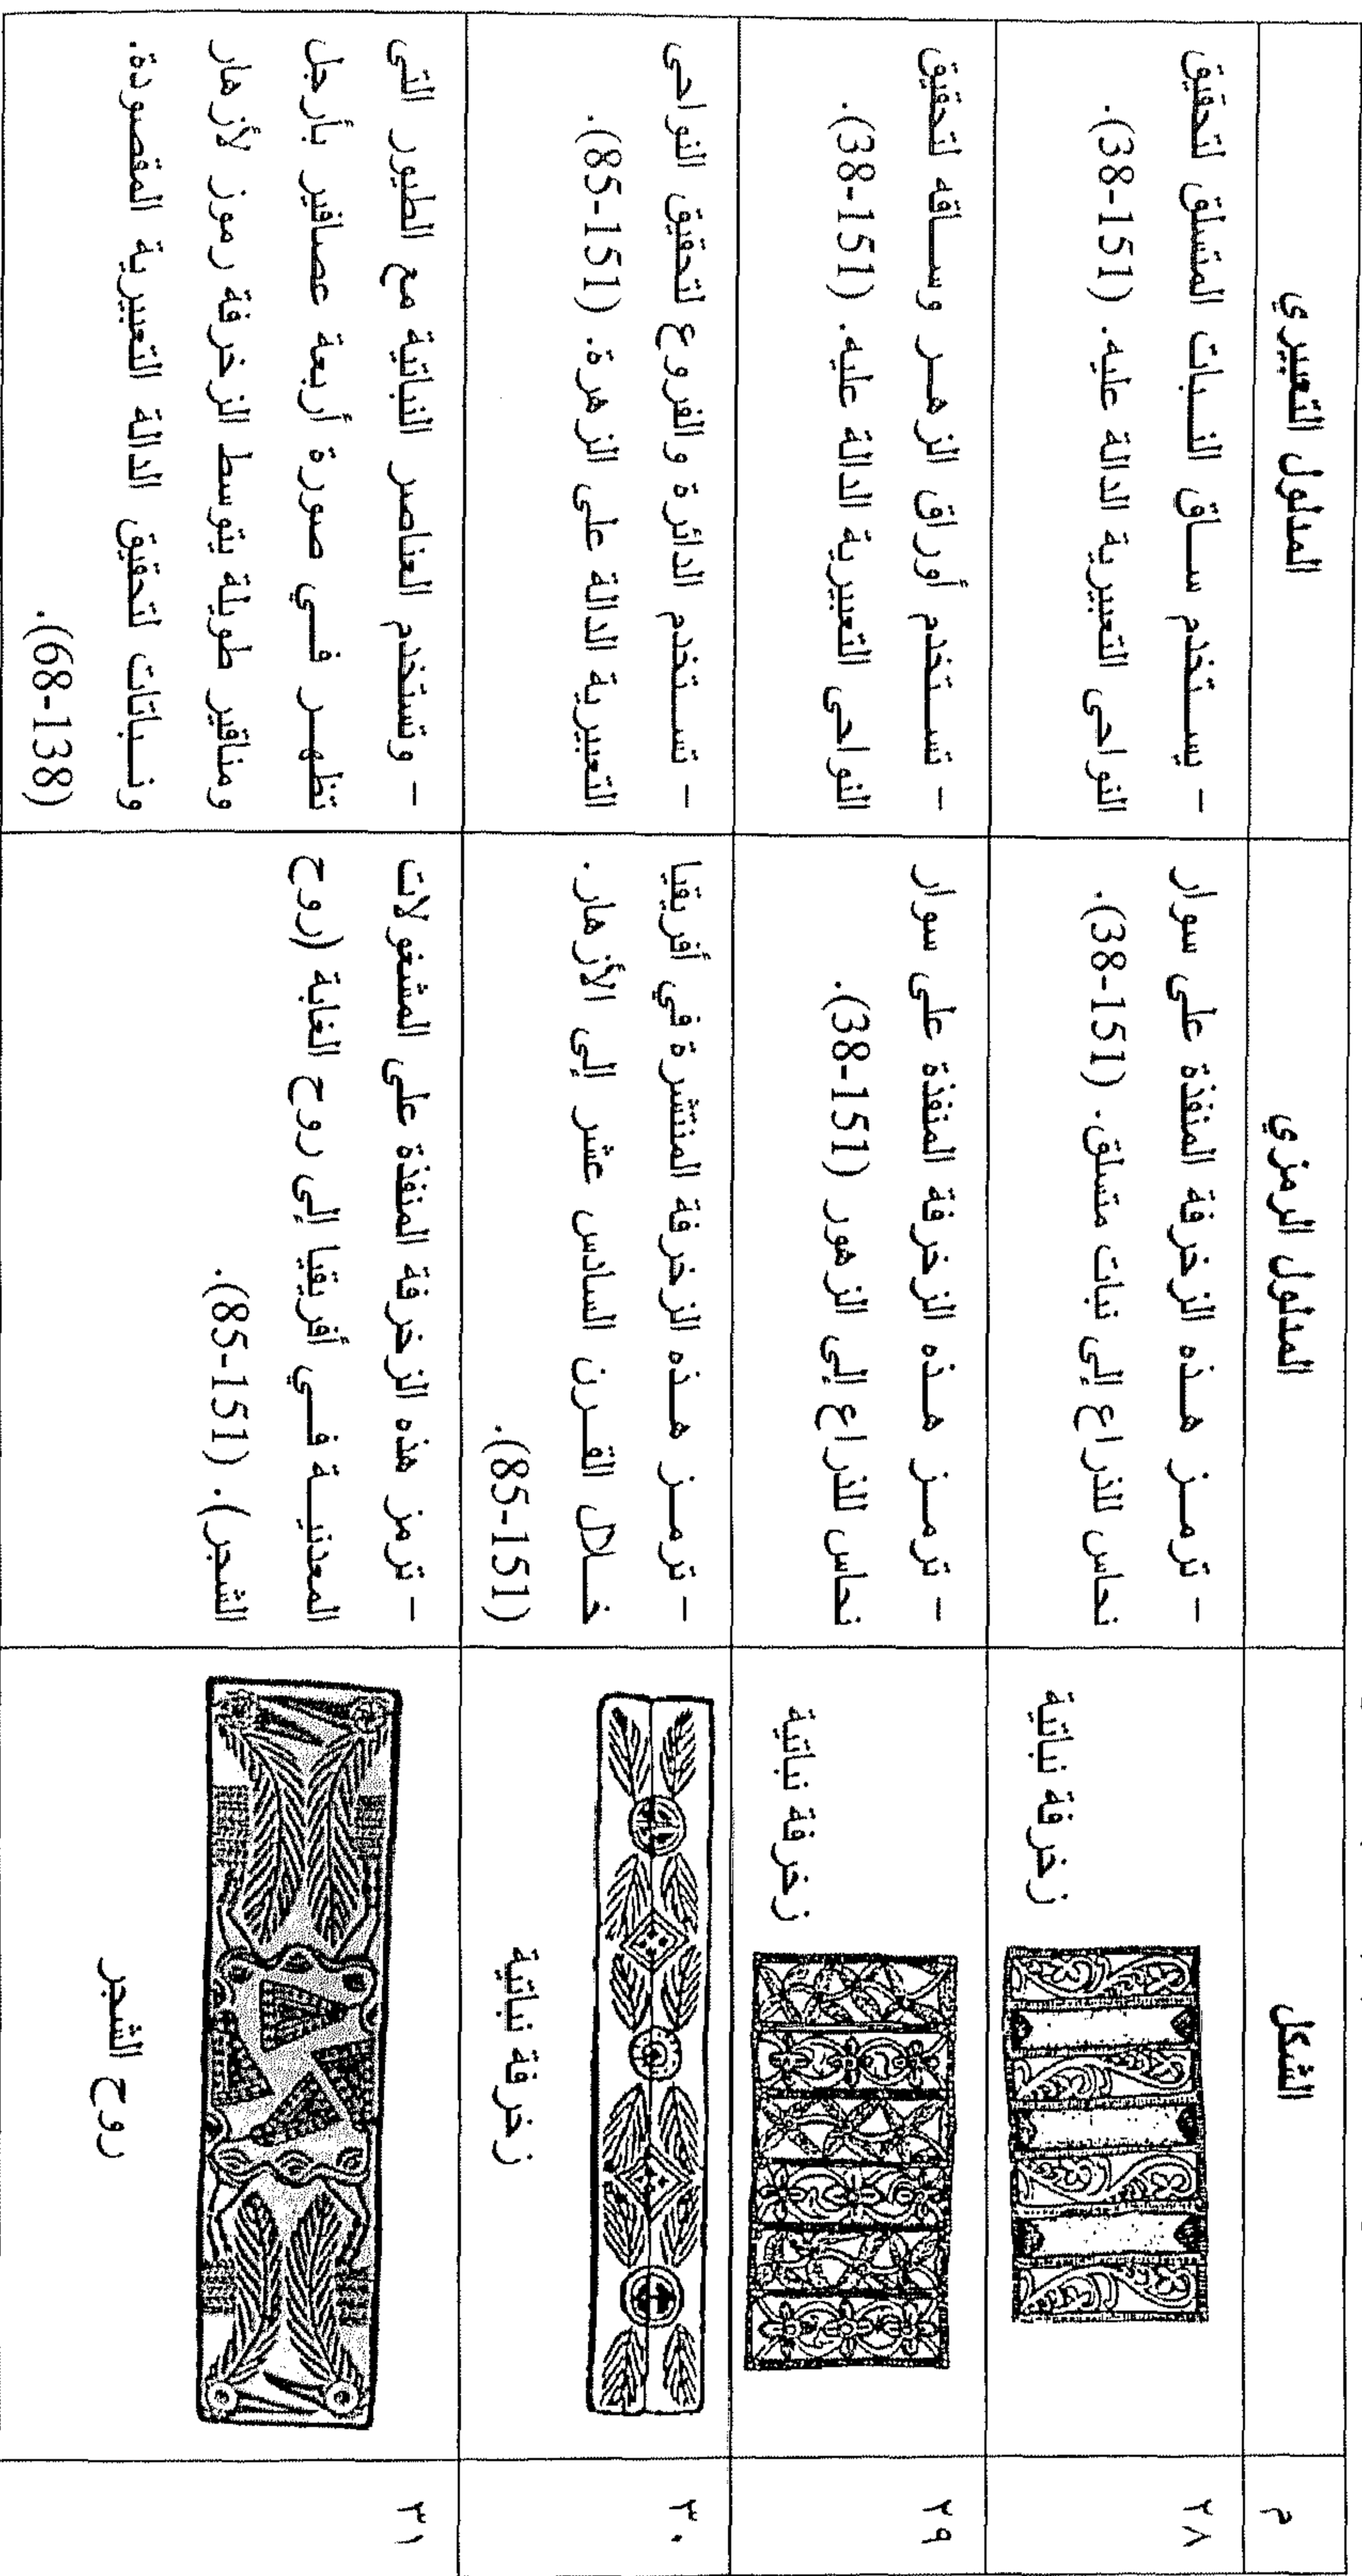 م
الشكل
المدلول الرمزي
المدلول التعبيري
٢٨
زخرفة نباتية
- ترمز هذه الزخرفة المنفذة على سوار
نحاس للذراع إلى نبات متسلق. (151-38).
- يستخدم ساق النبات المتسلق لتحقيق
النواحى التعبيرية الدالة عليه. (151-38).
٢٩
زخرفة نباتية
- ترمز هذه الزخرفة المنفذة على سوار
نحاس للذراع إلى الزهور (151-38).
- تستخدم أوراق الزهر وساقه لتحقيق
النواحى التعبيرية الدالة عليه. (151-38).
٣٠
زخرفة نباتية
- ترمز هذه الزخرفة المنتشرة في أفريقيا
خلال القرن السادس عشر إلى الأزهار.
(151-85).
- تستخدم الدائرة والفروع لتحقيق النواحى
التعبيرية الدالة على الزهرة. (151-85).
٣١
روح الشجر
- ترمز هذه الزخرفة المنفذة على المشغولات
المعدنية في أفريقيا إلى روح الغابة (روح
الشجر). (151-85).
- وتستخدم العناصر النباتية مع الطيور التى
تظهر في صورة أربعة عصافير بأرجل
ومناقير طويلة يتوسط الزخرفة رموز لأزهار
ونباتات لتحقيق الدالة التعبيرية المقصودة.
(138-68).